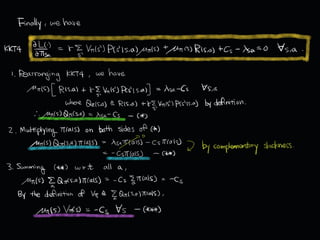 Finally, we have
KKT4 ∂L(·)/∂π_{s,a} = γ Σ_{s'} V_π(s') P(s'|s,a) μ_π(s) + μ_π(s) R(s,a) + C_s - λ_{s,a} = 0 ∀s,a.
1. Rearranging KKT4, we have
μ_π(s) [ R(s,a) + γ Σ_{s'} V_π(s') P(s'|s,a) ] = λ_{s,a} - C_s ∀s,a
where Q_π(s,a) = R(s,a) + γ Σ_{s'} V_π(s') P(s'|s,a) by definition.
∴ μ_π(s) Q_π(s,a) = λ_{s,a} - C_s — (*)
2. Multiplying π(a|s) on both sides of (*)
μ_π(s) Q_π(s,a) π(a|s) = λ_{s,a} π(a|s) - C_s π(a|s)
= -C_s π(a|s) — (**)
by complementary slackness.
3. Summing (**) w.r.t all a,
μ_π(s) Σ_a Q_π(s,a) π(a|s) = -C_s Σ_a π(a|s) = -C_s
By the definition of V_π = Σ_a Q_π(s,a) π(a|s),
μ_π(s) V_π(s) = -C_s ∀s — (***)